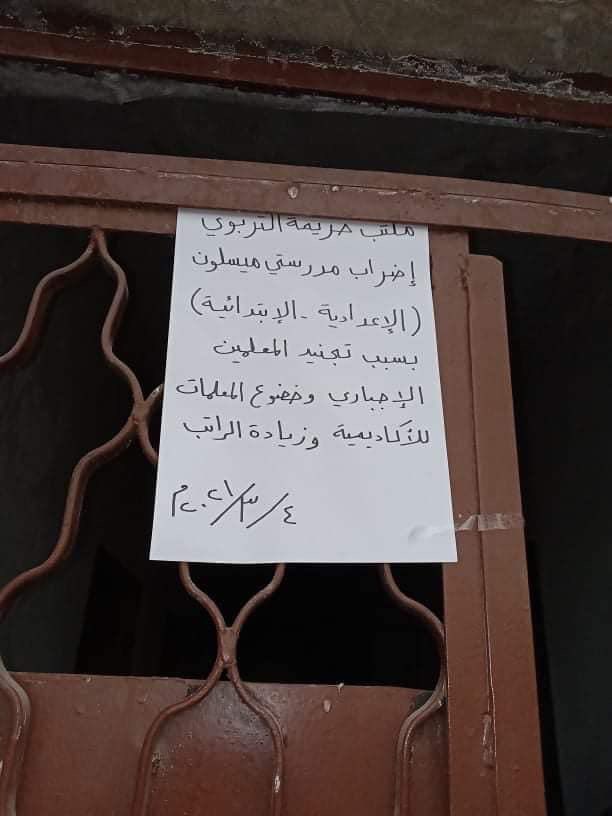 مكتب خريمة التربوي
إضراب مدرستي ميسلون
(الإعدادية - الإبتدائية)
بسبب تجنيد المعلمين
الإجباري وخضوع المعلمات
للأكاديمية وزيادة الراتب
٤/٣/٢٠٢١م